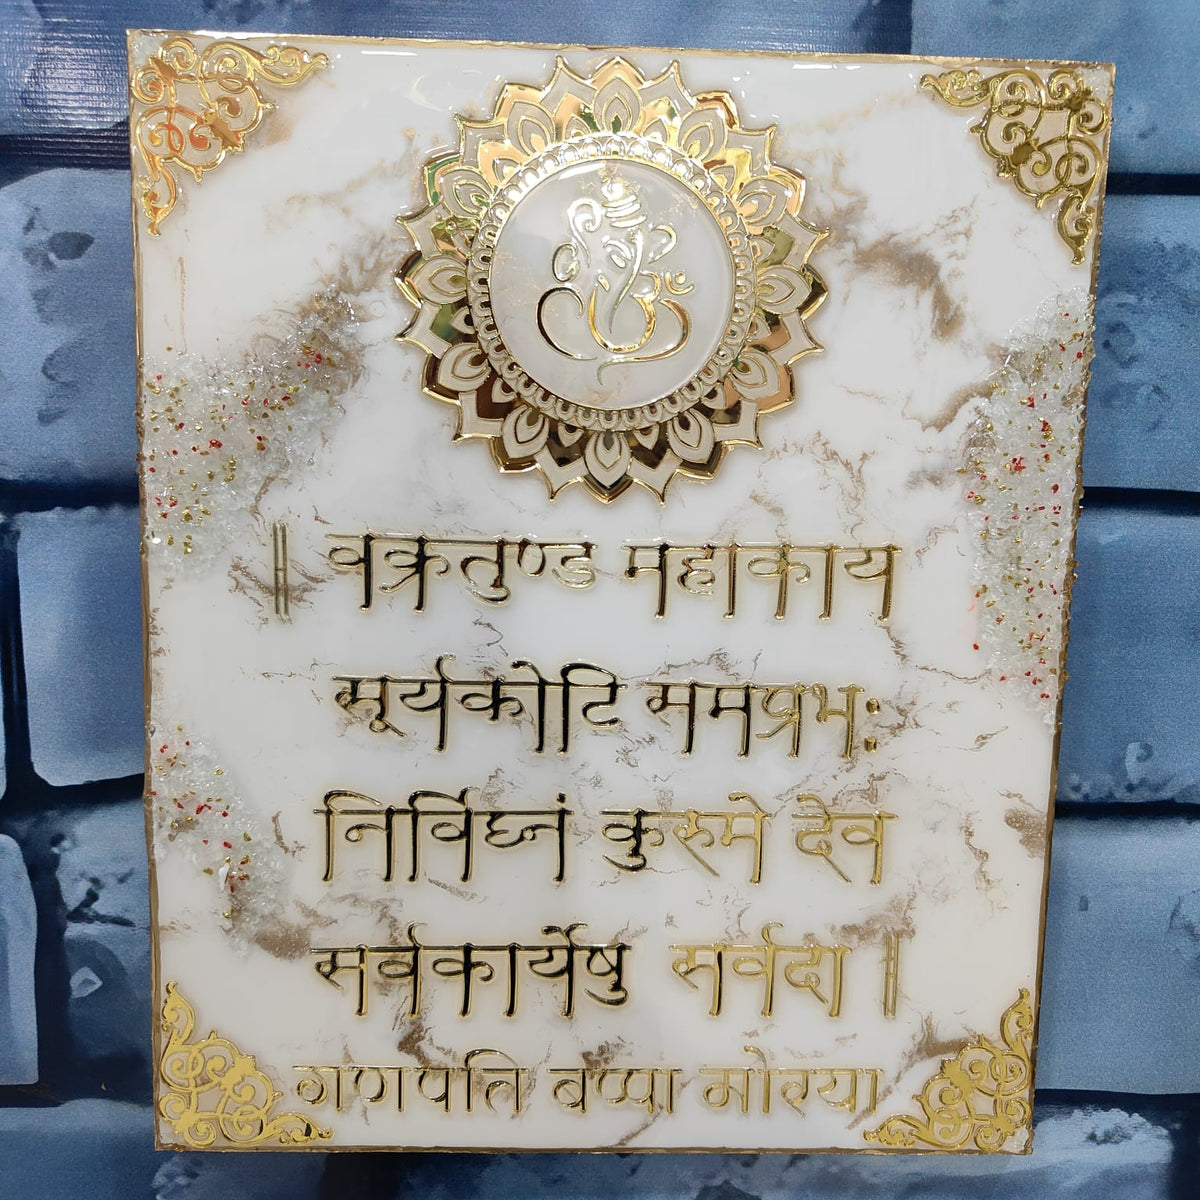 ॥ वक्रतुण्ड महाकाय
सूर्यकोटि समप्रभः
निर्विघ्नं कुरुमे देव
सर्वकार्येषु सर्वदा ॥
गणपति बप्पा मोरया